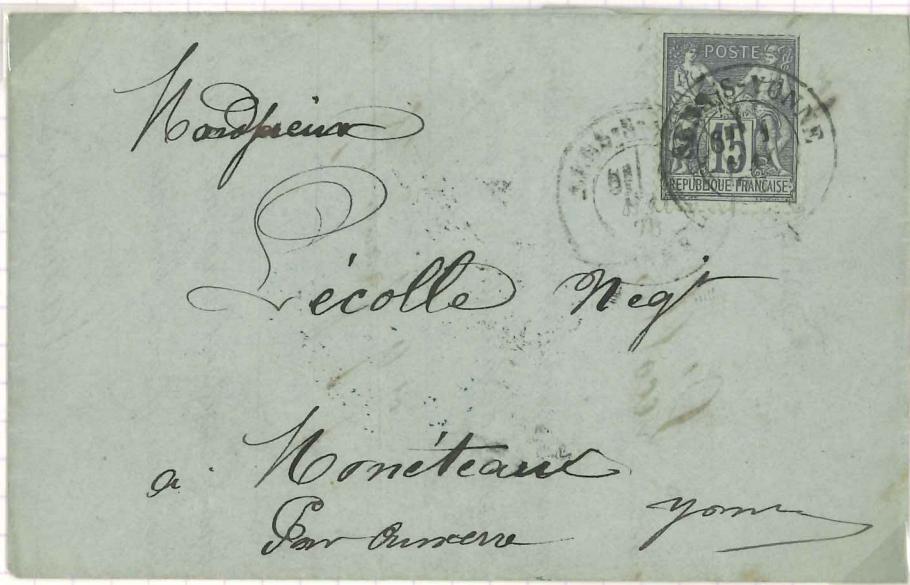 POSTE
15
REPUBLIQUE FRANÇAISE
S-YONNE
Monsieur
Lécolle Negt
a Monéteaux
Par Auxerre Yonne